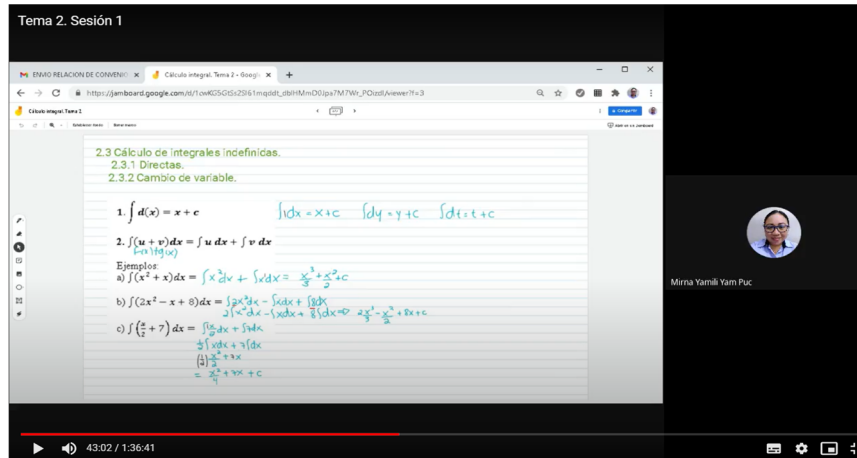 Tema 2. Sesión 1
ENVIO RELACION DE CONVENIO
Cálculo integral, Tema 2 - Googl
Cálculo integral, Tema 2
Compartir
2.3 Cálculo de integrales indefinidas.
2.3.1 Directas.
2.3.2 Cambio de variable.
1. ∫ d(x) = x + c ∫1dx = x+c ∫dy = y+c ∫dt = t+c
2. ∫(u + v)dx = ∫ u dx + ∫ v dx
f(x)+g(x)
Ejemplos:
a) ∫(x² + x)dx = ∫x²dx + ∫xdx = x³/3 + x²/2 + c
b) ∫(2x² − x + 8)dx = ∫2x²dx − ∫xdx + ∫8dx
2∫x²dx − ∫xdx + 8∫dx => 2x³/3 − x²/2 + 8x+c
c) ∫(x/2 + 7) dx = ∫1x/2 dx + ∫7dx
1/2∫xdx + 7∫dx
(1/2) x²/2 + 7x
= x²/4 + 7x + c
Mirna Yamili Yam Puc
43:02 / 1:36:41